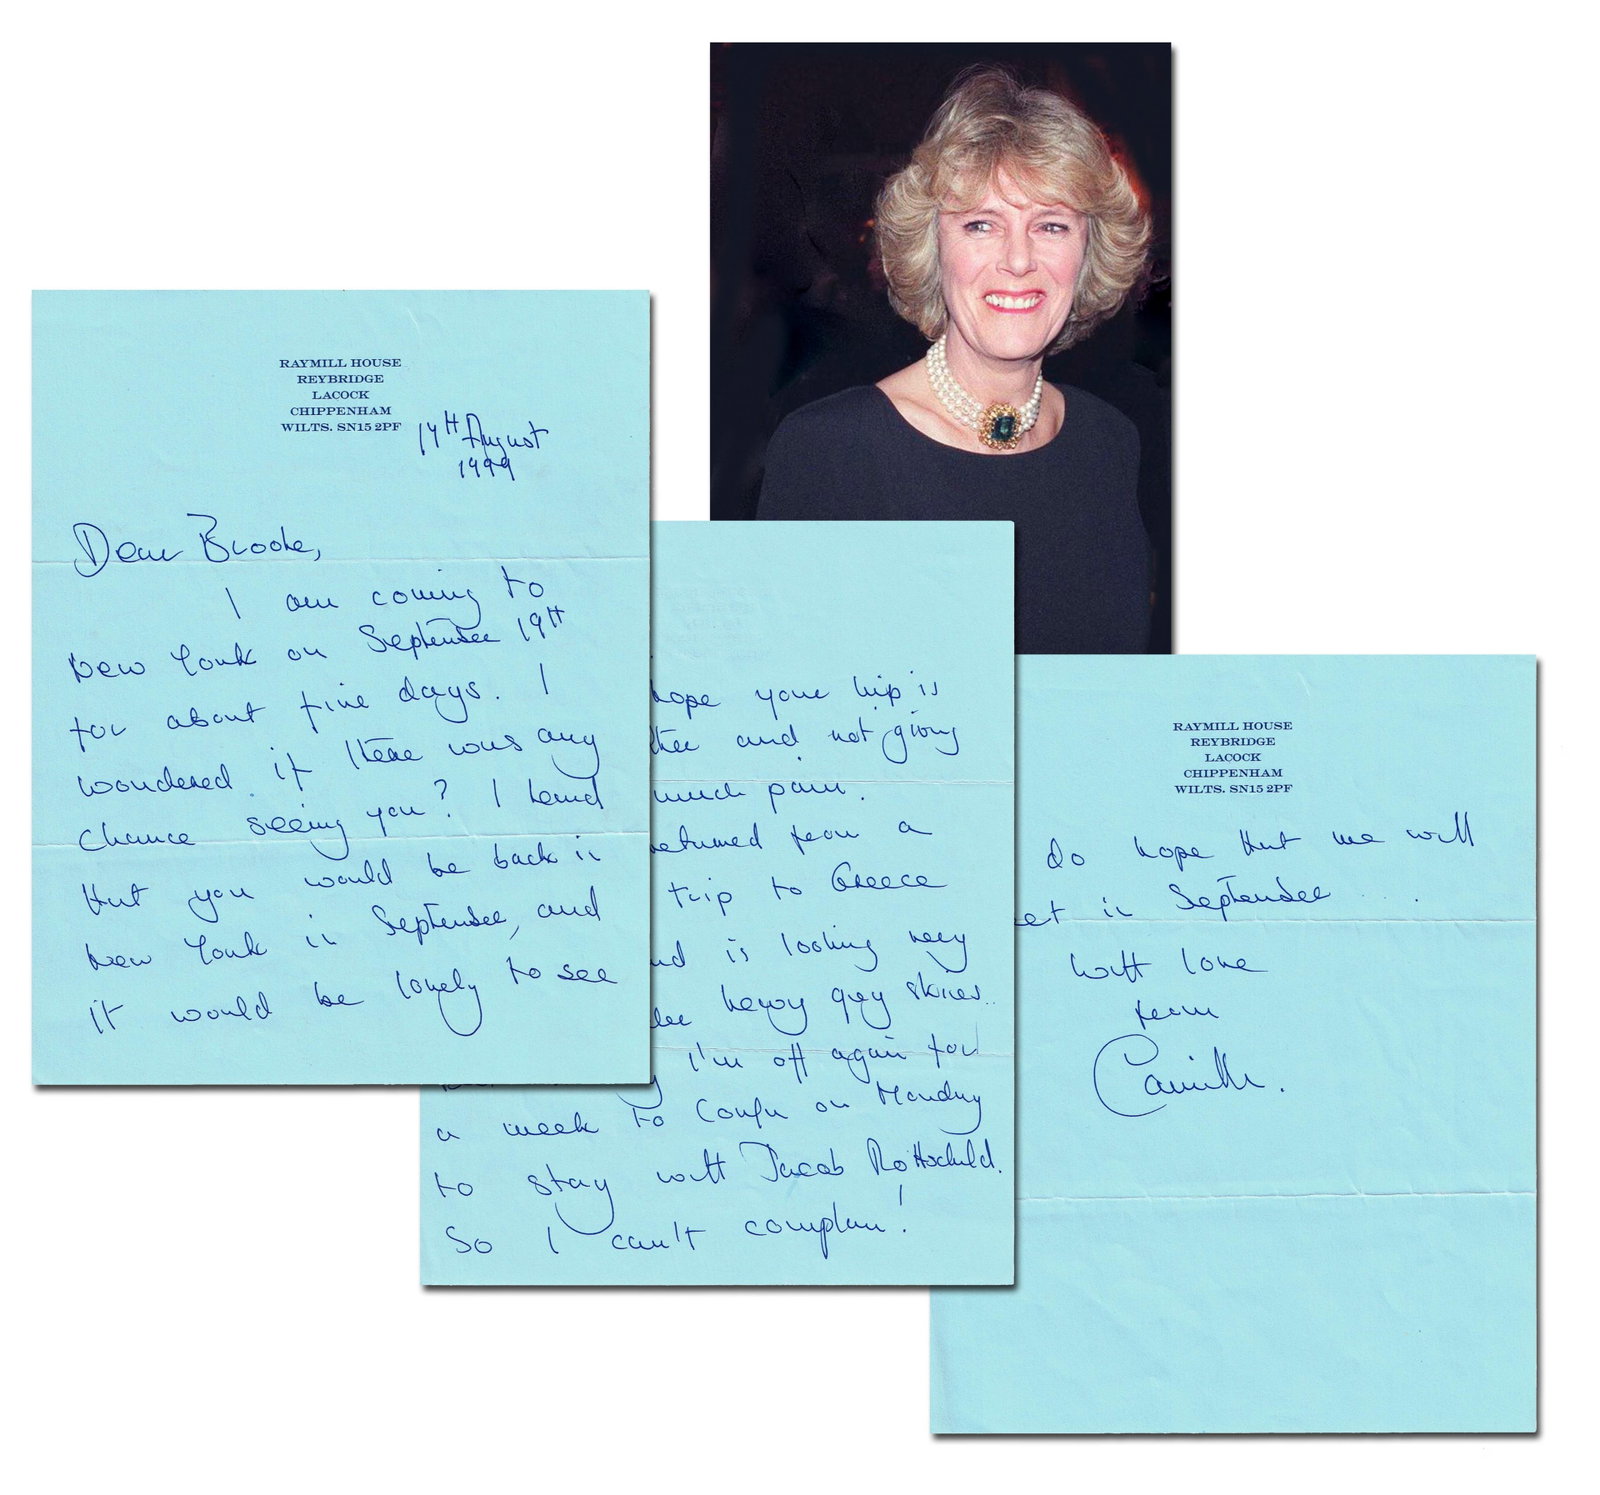 RAYMILL HOUSE
REYBRIDGE
LACOCK
CHIPPENHAM
WILTS. SN15 2PF
14th August
1999
Dear Brooke,
I am coming to
New York on September 19th
for about five days. I
wondered if there was any
chance seeing you? I heard
that you would be back in
New York in September, and
it would be lovely to see
hope your hip is
and not giving
much pain.
returned from a
trip to Greece
is looking very
heavy grey skies..
I'm off again for
a week to Corfu on Monday
to stay with Jacob Rothschild.
So I can't complain!
RAYMILL HOUSE
REYBRIDGE
LACOCK
CHIPPENHAM
WILTS. SN15 2PF
do hope that we will
in September...
with love
from
Camilla.